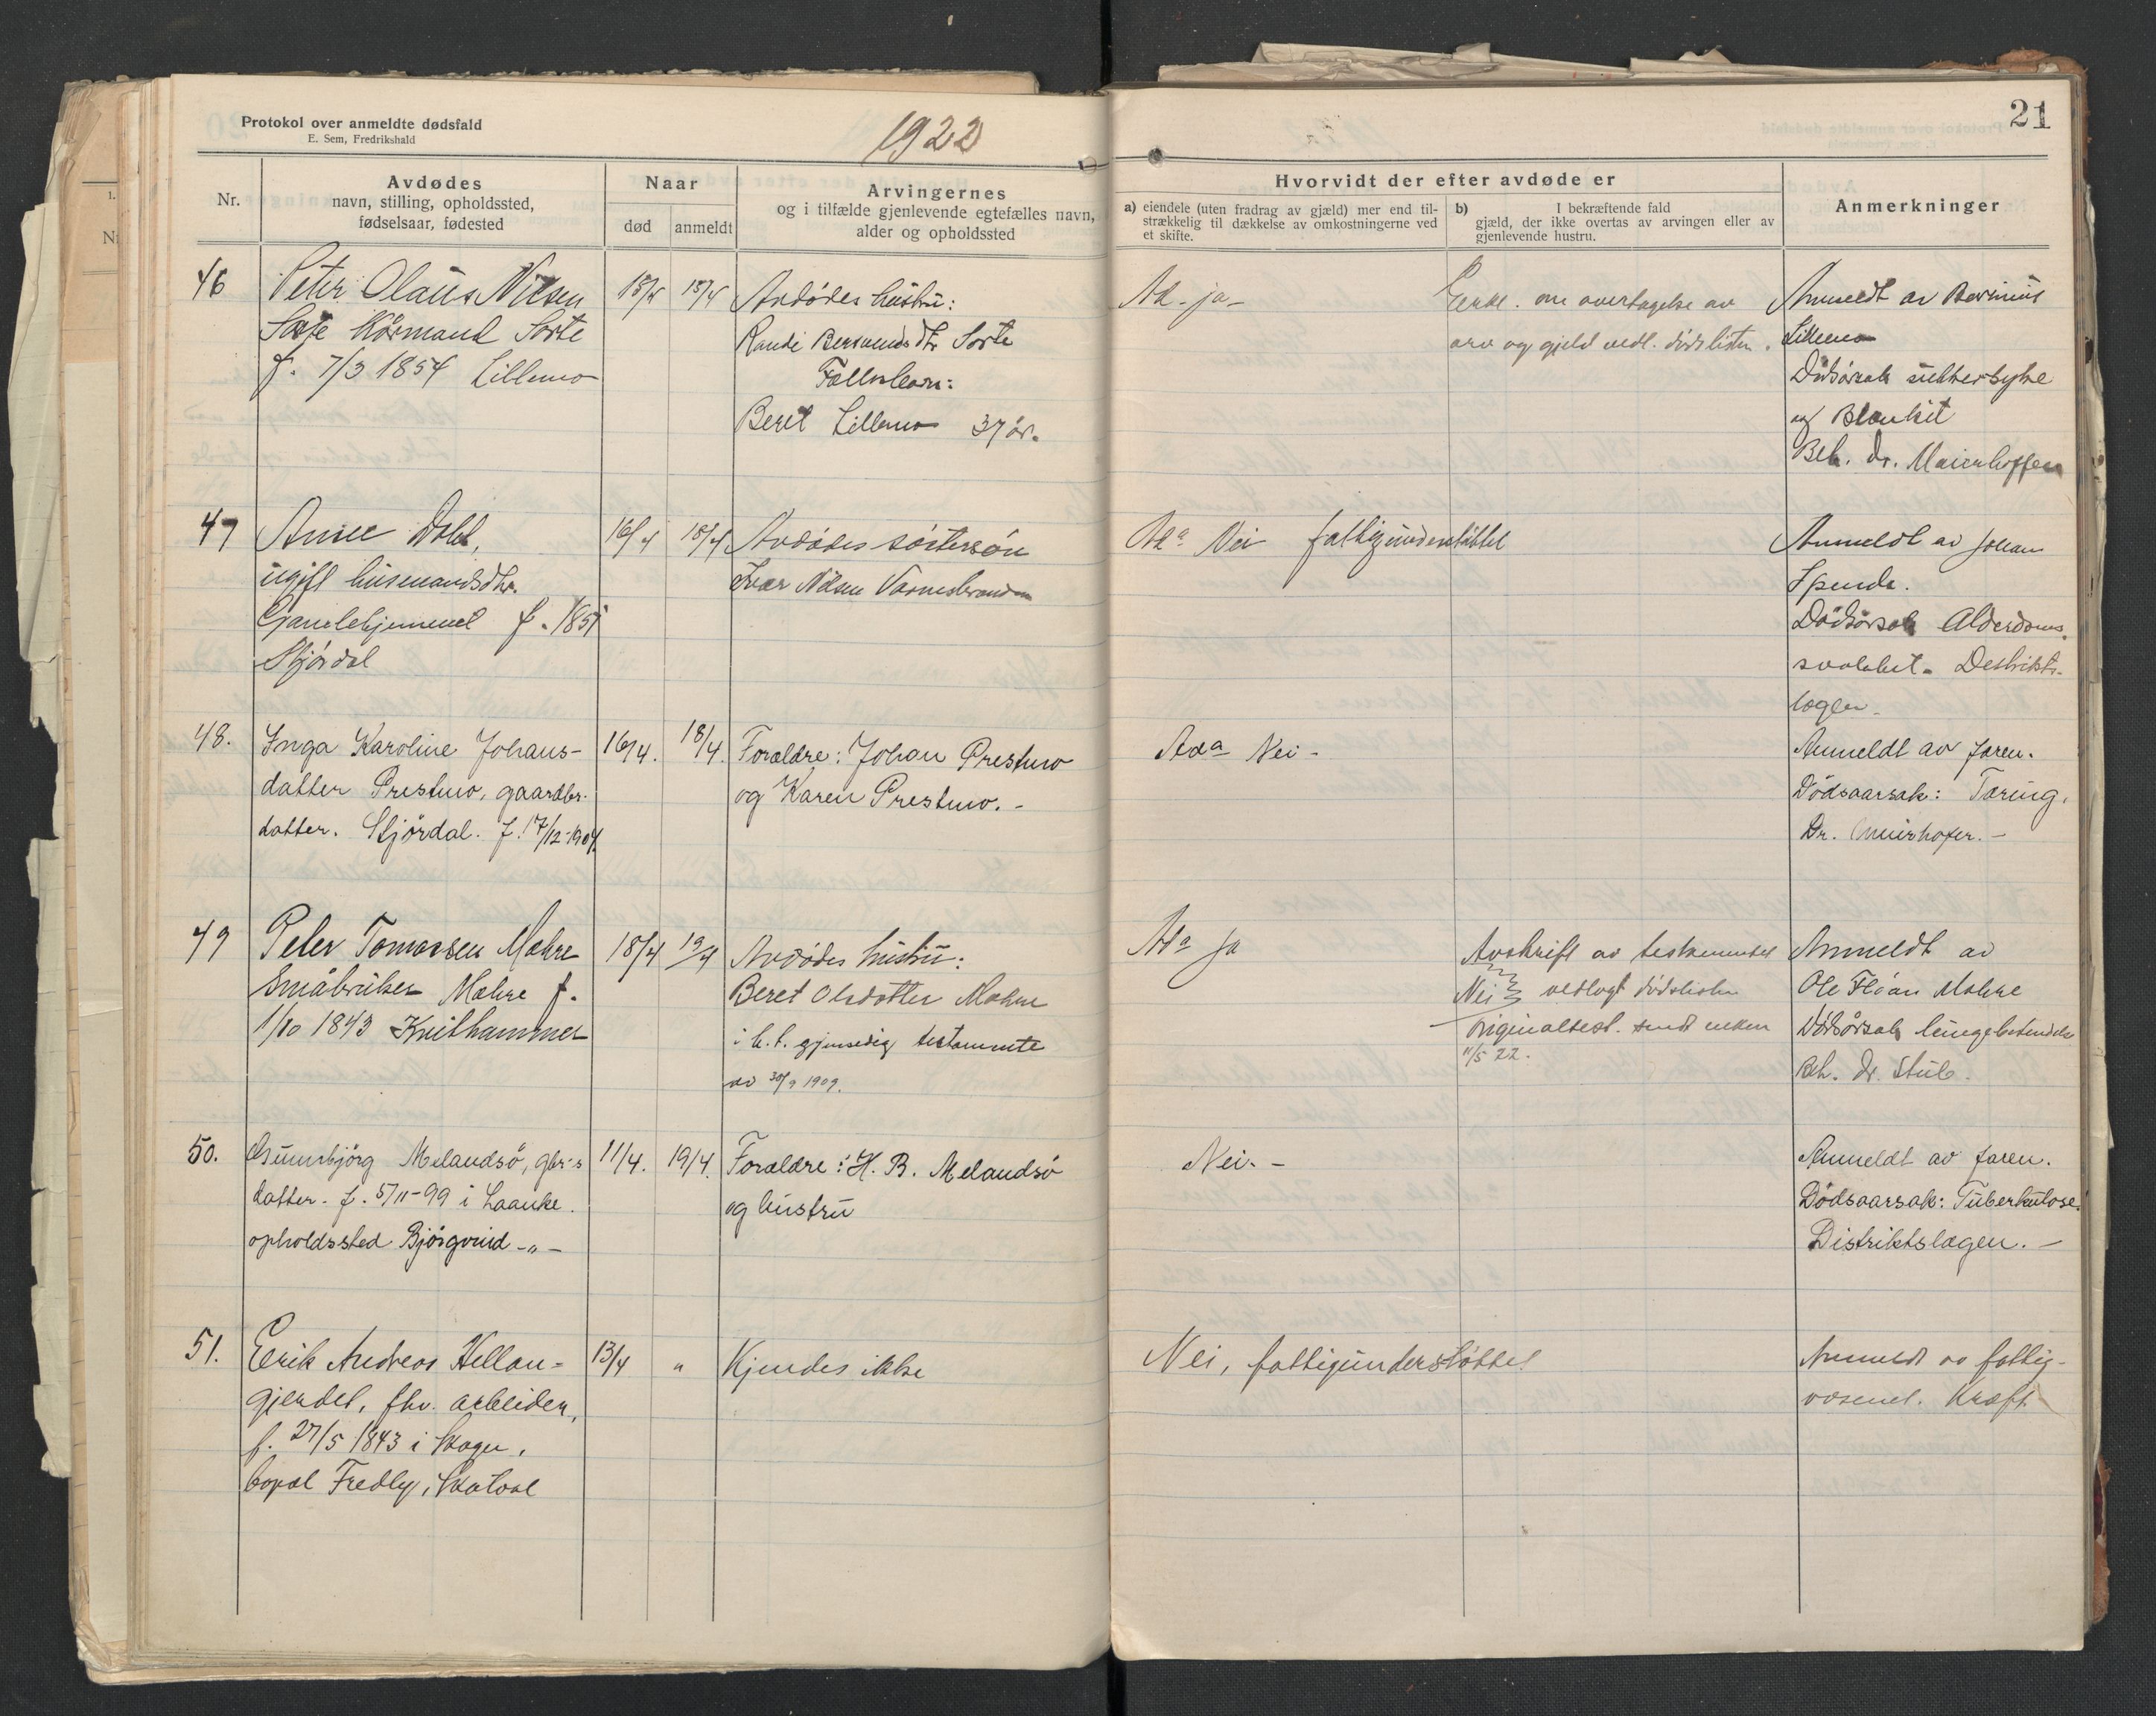 Protokol over anmeldte dødsfald
E. Sem, Fredrikshald
1922
21
Nr.
Avdødes
navn, stilling, opholdssted,
fødselsaar, fødested
Naar
død
anmeldt
Arvingernes
og i tilfælde gjenlevende egtefælles navn,
alder og opholdssted
Hvorvidt der efter avdøde er
a) eiendele (uten fradrag av gjæld) mer end til-
strækkelig til dækkelse av omkostningerne ved
et skifte.
b) I bekræftende fald
gjæld, der ikke overtas av arvingen eller av
gjenlevende hustru.
Anmerkninger
46
Peter Olaus Nilsen
Sorte Kårmand Sorte
f. 7/3 1854 Lillemo
15/4
18/4
Avdødes hustru:
Randi dtr Sorte
Fællesbarn:
Beret Lillemo 37 år.
Ad. ja
Erkl. om overtagelse av
arv og gjeld vedl. dødslisten.
Anmeldt av
Lillemo
Dødsårsak sukkersyke
Beh. dr. Maierhoffer
47
Anne Dahl,
ugift husmandsdtr.
Gamlehjemmet f. 1851
Stjørdal
16/4
18/4
Avdødes søstersøn
Ivar Nilsen
Ad a Nei fattigunderstøttet
Anmeldt av Johan
Dødsårsak Alderdoms-
svakhet. Destrikts-
lægen.
48.
Inga Karoline Johans-
datter Prestmo, gaardbr.
datter. Stjørdal. f. 17/12-1904
16/4.
18/4.
Forældre: Johan Prestmo
og Karen Prestmo. -
Ad a Nei -
Anmeldt av faren.
Dødsaarsak: Tæring.
Dr. Meierhofer. -
49
Peter Tomassen Mæhre
Småbruker Mæhre f.
1/10 1843 Knithammer
18/4
19/4
Avdødes hustru:
Beret Olsdatter Mæhre
i h.t. gjensidig testamente
av 30/9 1909.
Ad a ja
Avskrift av testamentet
Nei vedlagt dødslisten
Originaltest. sendt enken
11/5 22.
Anmeldt av
Ole Mæhre
Dødsårsak lungebetendelse
Beh. dr. Stub.
50.
Gunnbjörg Melandsö, gbr.s
datter. f. 5/11-99 i Laanke.
opholdssted Björgvind -"-
11/4.
19/4.
Forældre: H. B. Melandsö
og hustru
Nei. -
Anmeldt av faren.
Dødsaarsak: Tuberkulose.
Distriktslægen. -
51.
Eerik Andreas Hellan-
gjerdet, fhv. arbeider,
f. 27/5 1843 i Skogn.
bopæl Fredly, Skatval
13/4
"
Kjendes ikke
Nei, fattigunderstøttet
Anmeldt av fattig-
væsenet. Kræft